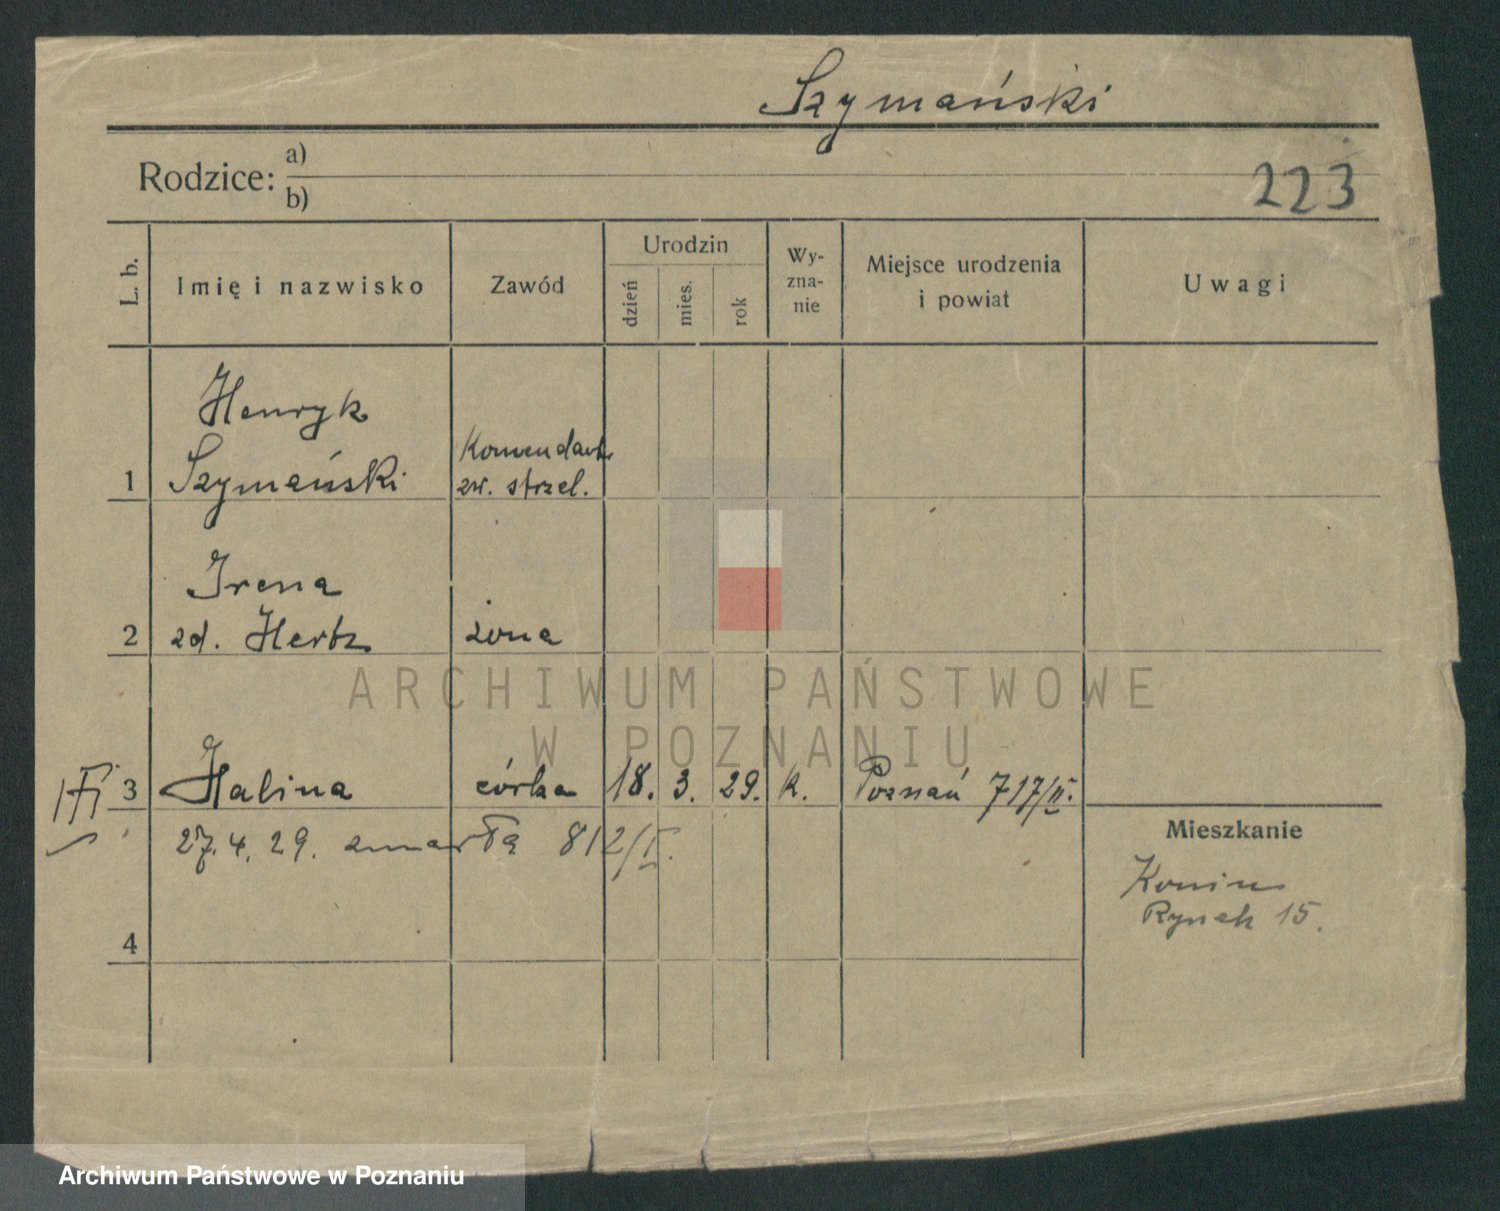 Szymański
Rodzice: a)
b)
223
L. b.
Imię i nazwisko
Zawód
Urodzin
dzień
mies.
rok
Wy-
zna-
nie
Miejsce urodzenia
i powiat
Uwagi
Henryk
1 Szymański
Komendant
zw. strzel.
Irena
2 zd. Hertz żona
3 Halina córka 18. 3. 29. k. Poznań 717/II.
27.4.29. zmarła 812/I.
Mieszkanie
Konin
Rynek 15.
4
ARCHIWUM PAŃSTWOWE
W POZNANIU
Archiwum Państwowe w Poznaniu